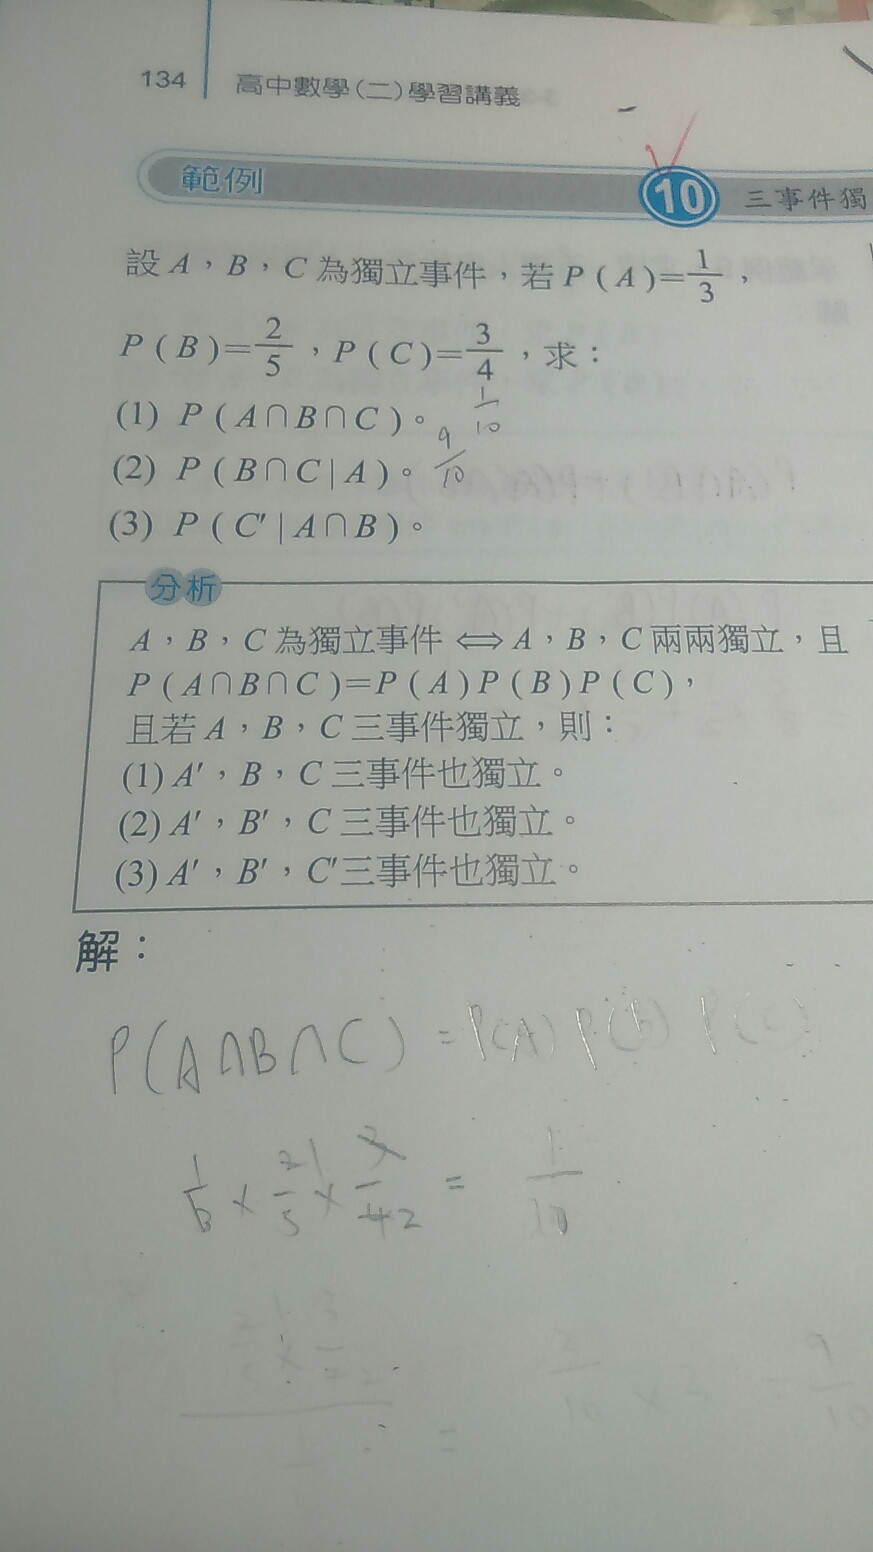 134 高中數學(二)學習講義
範例 10 三事件獨
設 A,B,C 為獨立事件,若 P(A)=1/3,
P(B)=2/5,P(C)=3/4,求:
(1) P(A∩B∩C)。 1/10
(2) P(B∩C|A)。 9/10
(3) P(C'|A∩B)。
分析
A,B,C 為獨立事件 ⟺ A,B,C 兩兩獨立,且
P(A∩B∩C)=P(A)P(B)P(C),
且若 A,B,C 三事件獨立,則:
(1) A',B,C 三事件也獨立。
(2) A',B',C 三事件也獨立。
(3) A',B',C' 三事件也獨立。
解:
P(A∩B∩C) = P(A) P(B) P(C)
1/3 × 2/5 × 3/4 2 = 1/10
3/10 × 3 = 9/10